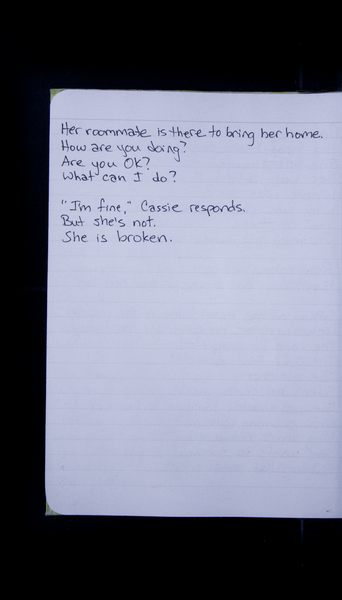 Her roommate is there to bring her home.
How are you doing?
Are you OK?
What can I do?
"I'm fine," Cassie responds.
But she's not.
She is broken.